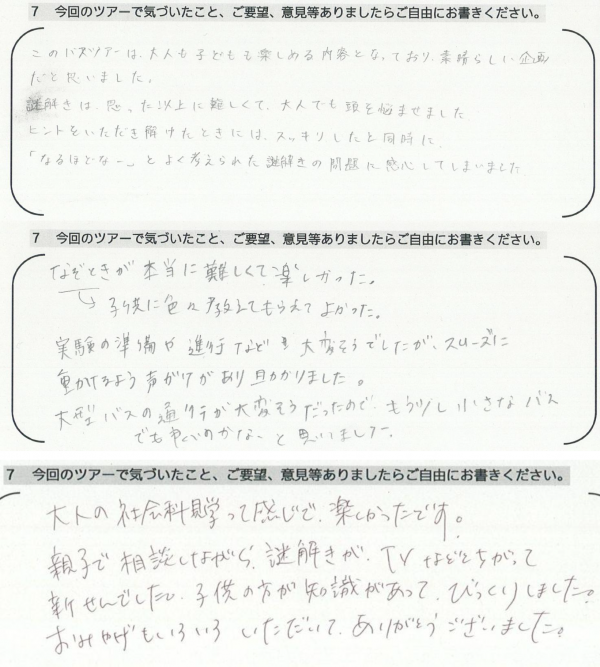 7　今回のツアーで気づいたこと、ご要望、意見等ありましたらご自由にお書きください。
このバスツアーは、大人も子どもも楽しめる内容となっており、素晴らしい企画
だと思いました。
謎解きは、思った以上に難しくて、大人でも頭を悩ませました
ヒントをいただき解けたときには、スッキリしたと同時に、
「なるほどなー」とよく考えられた謎解きの問題に感心してしまいました
7　今回のツアーで気づいたこと、ご要望、意見等ありましたらご自由にお書きください。
なぞときが本当に難しくて楽しかった。
子供に色々教えてもらえてよかった。
実験の準備や進行なども大変そうでしたが、スムーズに
動かけるよう声がけがあり助かりました。
大型バスの通行が大変そうだったので、もう少し小さなバス
でも良いのかな、と思いました。
7　今回のツアーで気づいたこと、ご要望、意見等ありましたらご自由にお書きください。
大人の社会科見学って感じで、楽しかったです。
親子で相談しながら、謎解きが、TVなどとちがって
新せんでしたし、子供の方が知識があって、びっくりしました。
おみやげもいろいろいただいて、ありがとうございました。